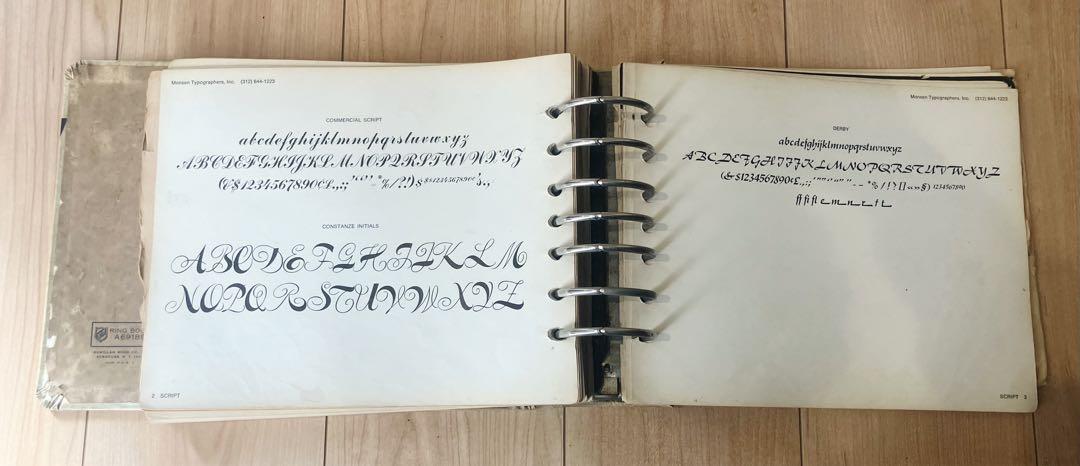 Monsen Typographers, Inc. (312) 644-1223
COMMERCIAL SCRIPT
abcdefghijklmnopqrstuvwxyz
ABCDEFGHIJKLMNOPQRSTUVWXYZ
(&$1234567890¢£.,:;''""-*%/?!)
CONSTANZE INITIALS
ABCDEFGHIJKLM
NOPQRSTUVWXYZ
RING BO
A6918
2 SCRIPT
Monsen Typographers, Inc. (312) 644-1223
DERBY
abcdefghijklmnopqrstuvwxyz
ABCDEFGHIJKLMNOPQRSTUVWXYZ
(&$1234567890¢£.,:; *%/!?[]«»§) 1234567890
SCRIPT 3